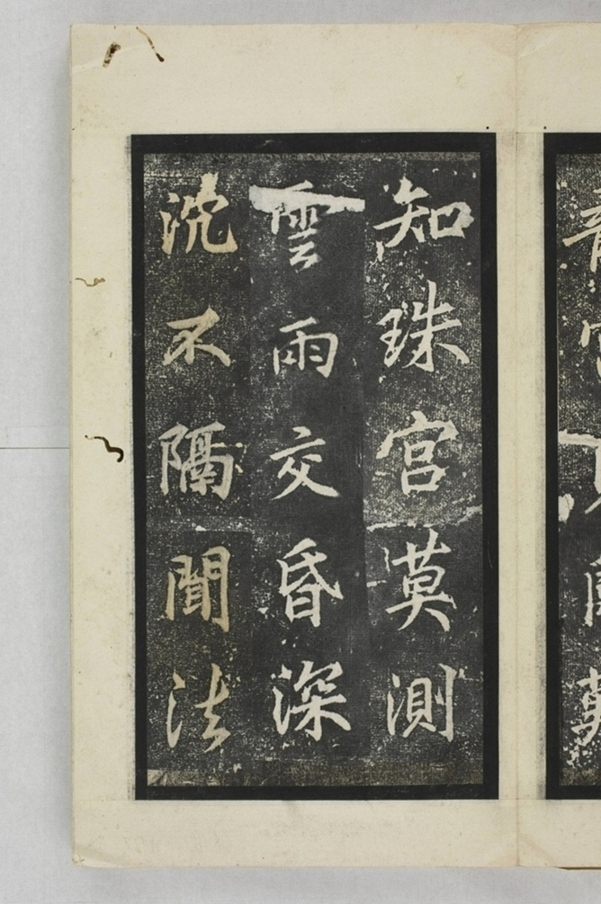 知珠宮莫測
雲雨交昏深
沈不隔聞法